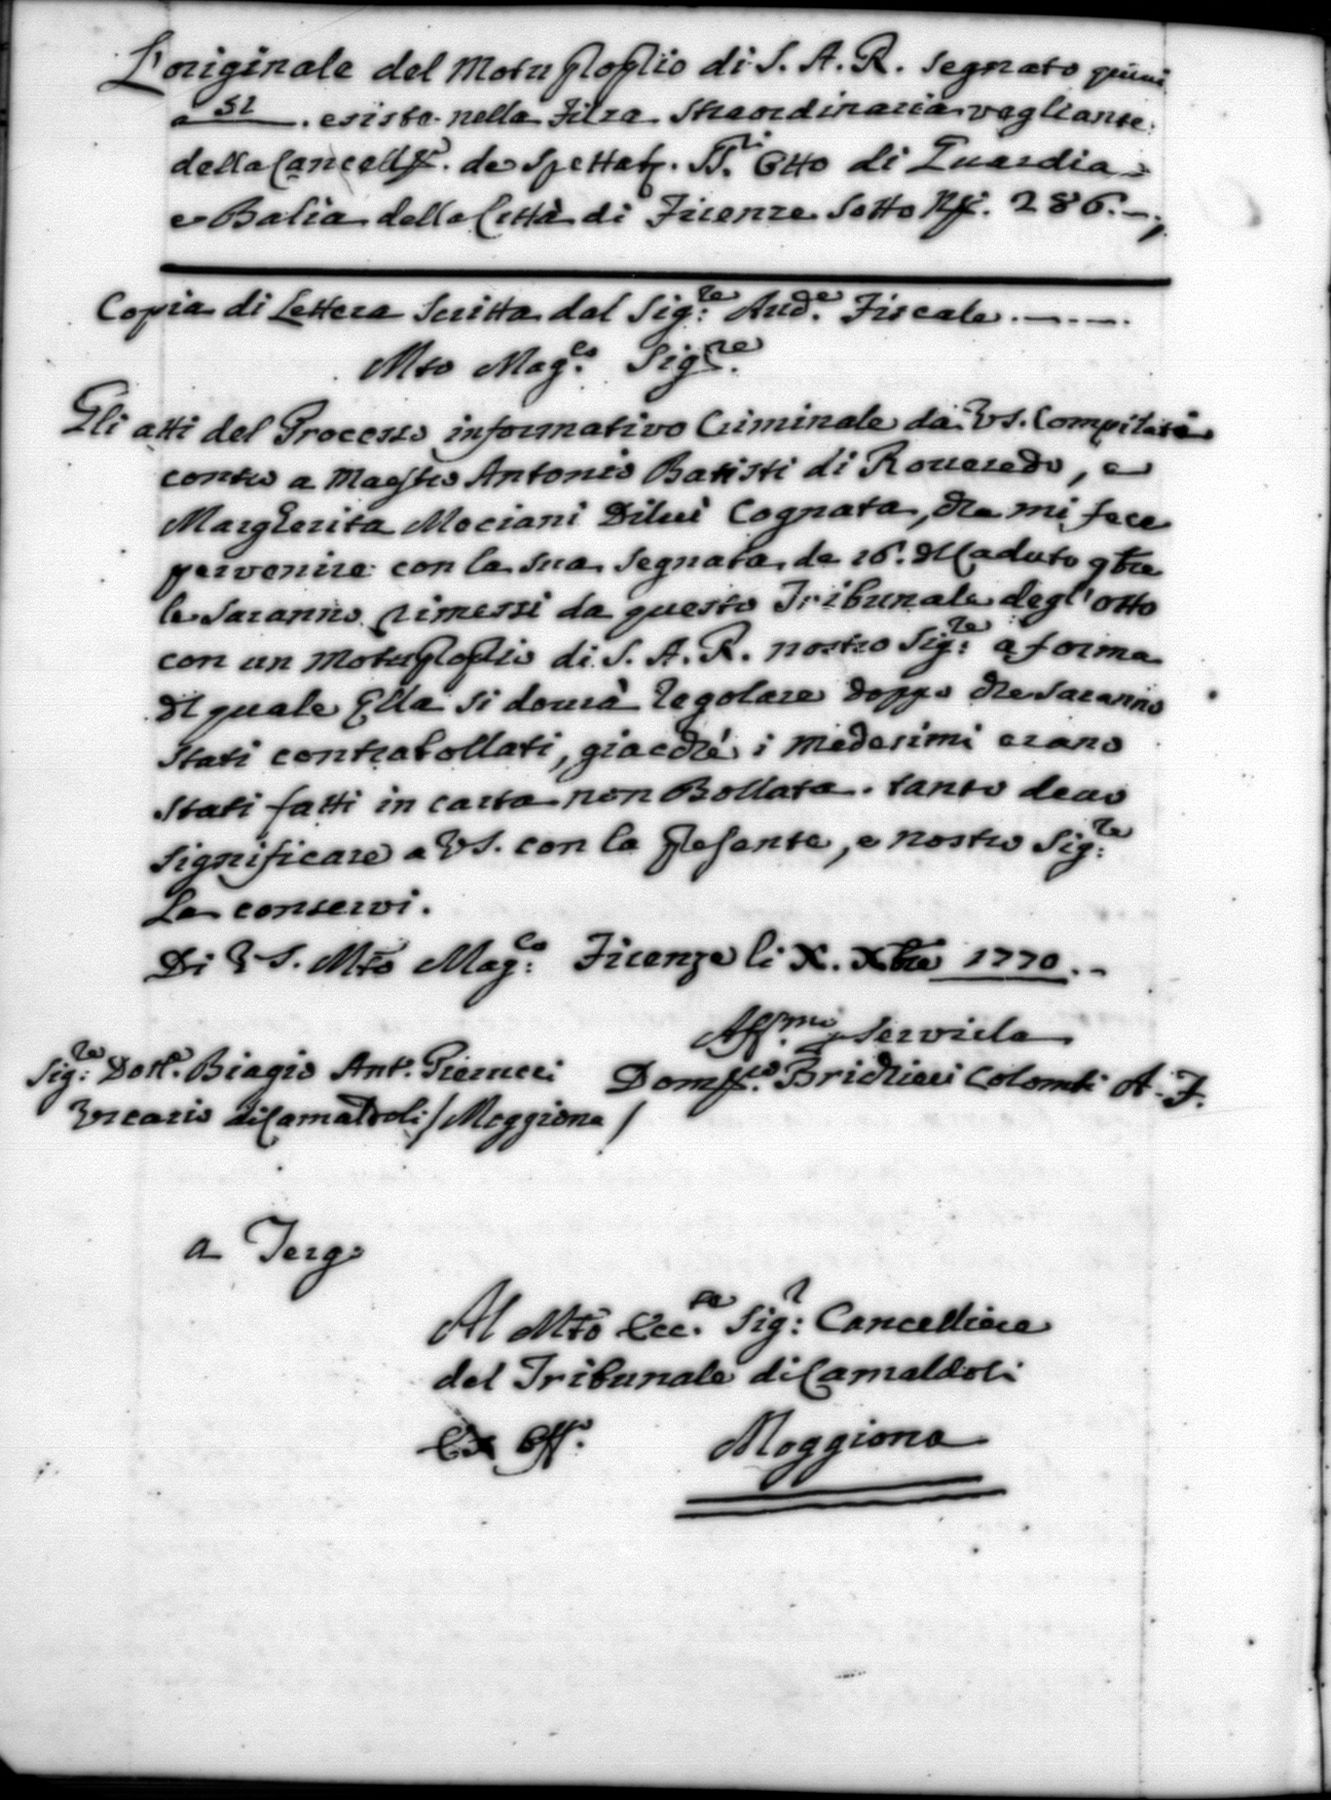 L'originale del Motuproprio di S. A. R. segnato quivi
a 31 . esiste nella Filza straordinaria vegliante
della Cancell.ª de Spettab. SS.ri Otto di Guardia
e Balia della Città di Firenze sotto N. 286. —
Copia di Lettera scritta dal Sig.re Aud.e Fiscale . — . — .
Mto Mag.co Sig.re
Gli atti del Processo informativo Criminale da VS. Compilati
contro a Maestro Antonio Batisti di Roveredo, e
Margherita Mociani Di lui Cognata, che mi fece
pervenire con la sua segnata de 16. del Caduto 9bre
le saranno rimessi da questo Tribunale degl'otto
con un Motuproprio di S. A. R. nostro Sig.re a forma
del quale Ella si dovrà regolare doppo che saranno
stati contrabollati, giacché i medesimi erano
stati fatti in carta non Bollata. tanto devo
significare a VS. con la presente, e nostro Sig.re
La conservi.
Di VS. Mto Mag.co Firenze li X. Xbre 1770 . —
Aff.mo per Servirla
Sig.re Dott.e Biagio Ant.o Pierucci Dom.co Brichieri Colombi A. F.
Vicario di Camaldoli / Moggiona /
a Tergo
Al Mto Ecc.te Sig.r Cancelliere
del Tribunale di Camaldoli
Ex Off.o Moggiona